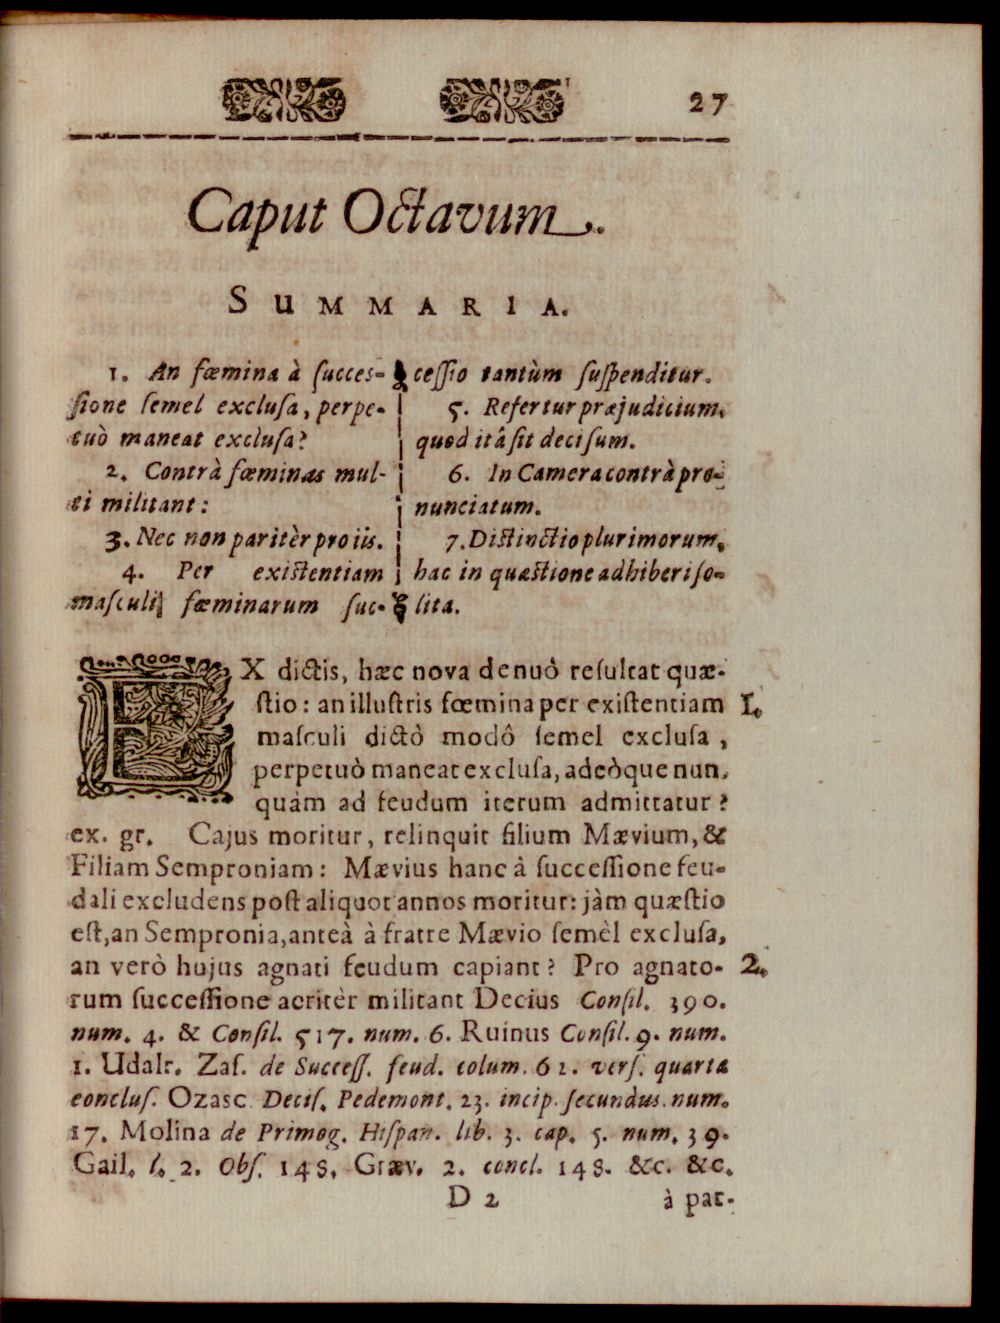 27
Caput Octavum.
SUMMARIA.
1. An fœmina à ſucces-
ſione ſemel excluſa, perpe-
tuò maneat excluſa?
2. Contrà fœminas mul-
ti militant:
3. Nec non paritèr pro iis.
4. Per existentiam
maſculi fœminarum ſuc-
ceſſio tantùm ſuſpenditur.
5. Refertur præjudicium,
quod itâ ſit deciſum.
6. In Camera contrà pro-
nunciatum.
7. Distinctio plurimorum,
hac in quæstione adhiberi ſo-
lita.
EX dictis, hæc nova denuò reſultat quæ-
ſtio: an illuſtris fœmina per exiſtentiam 1.
maſculi dictò modô ſemel excluſa,
perpetuò maneat excluſa, adeòque nun-
quàm ad feudum iterum admittatur?
ex. gr. Cajus moritur, relinquit filium Mævium, &
Filiam Semproniam: Mævius hanc à ſucceſſione feu-
dali excludens poſt aliquot annos moritur: jàm quæſtio
eſt, an Sempronia, anteà à fratre Mævio ſemèl excluſa,
an verò hujus agnati feudum capiant? Pro agnato- 2.
rum ſucceſſione acritèr militant Decius Conſil. 390.
num. 4. & Conſil. 517. num. 6. Ruinus Conſil. 9. num.
1. Udalr. Zaſ. de Succeſſ. feud. colum. 62. verſ. quarta
concluſ. Ozasc. Deciſ. Pedemont. 23. incip. ſecundus. num.
17. Molina de Primog. Hiſpan. lib. 3. cap. 5. num. 39.
Gail. l. 2. Obſ. 148. Græv. 2. concl. 148. &c. &c.
D 2 à par-